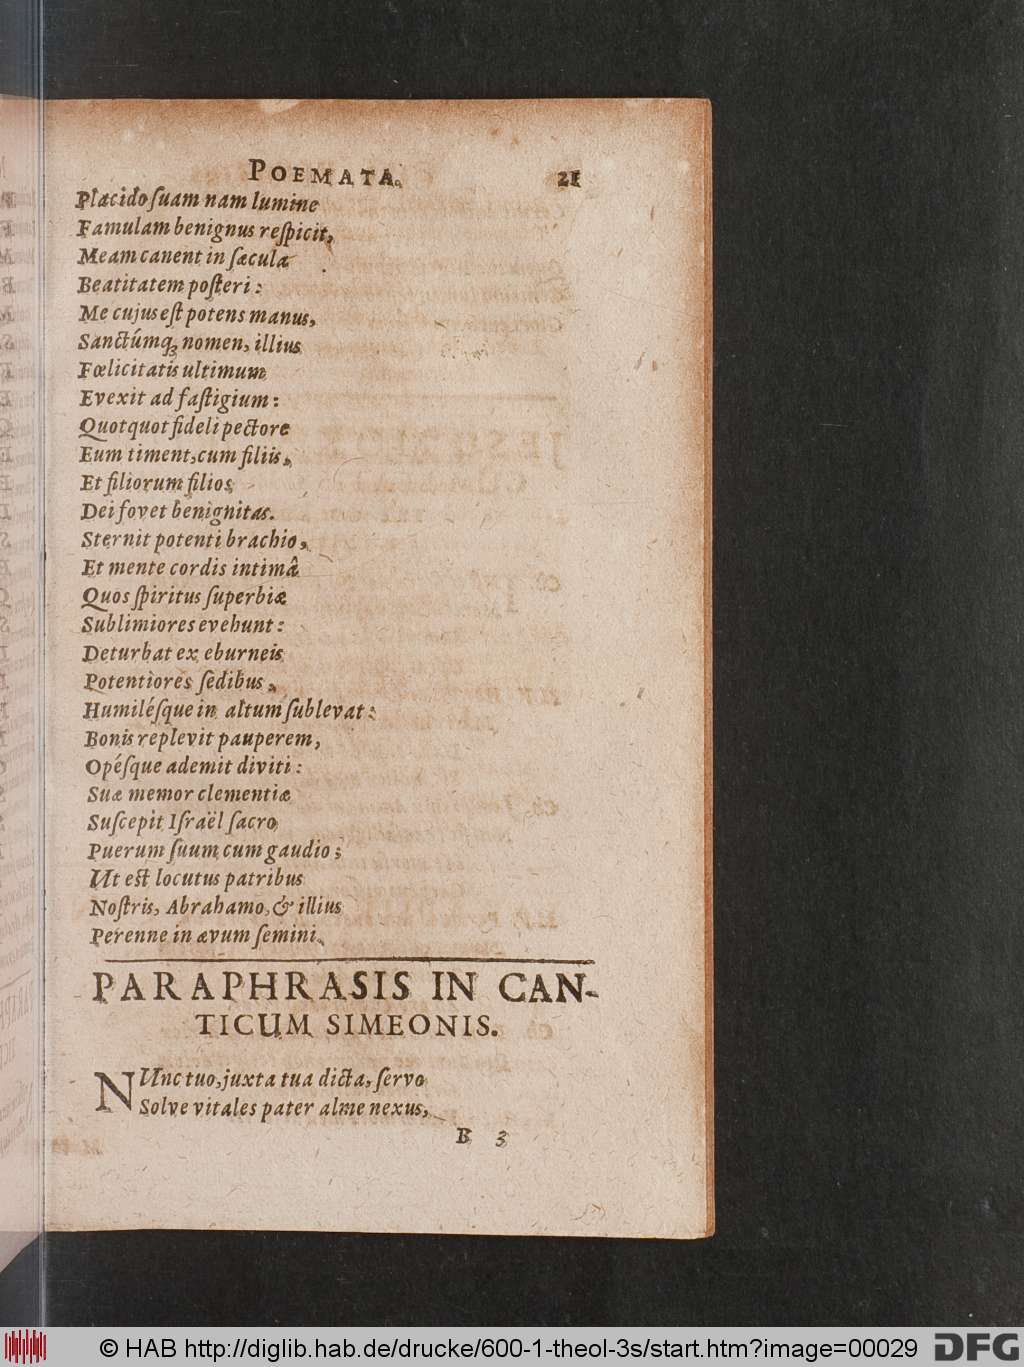 POEMATA. 21
Placido suam nam lumine
Famulam benignus reſpicit,
Meam canent in ſæcula
Beatitatem poſteri:
Me cujus eſt potens manus,
Sanctúmq; nomen, illius
Fœlicitatis ultimum
Evexit ad faſtigium:
Quotquot fideli pectore
Eum timent, cum filiis,
Et filiorum filios
Dei fovet benignitas.
Sternit potenti brachio,
Et mente cordis intimâ
Quos ſpiritus ſuperbiæ
Sublimiores evehunt:
Deturbat ex eburneis
Potentiores ſedibus,
Humiléſque in altum ſublevat:
Bonis replevit pauperem,
Opéſque ademit diviti:
Suæ memor clementiæ
Suſcepit Iſraël ſacro
Puerum ſuum cum gaudio;
Ut eſt locutus patribus
Noſtris, Abrahamo, & illius
Perenne in ævum ſemini.
PARAPHRASIS IN CAN-
TICUM SIMEONIS.
NUnc tuo, juxta tua dicta, ſervo
Solve vitales pater alme nexus,
B 3
© HAB http://diglib.hab.de/drucke/600-1-theol-3s/start.htm?image=00029 DFG